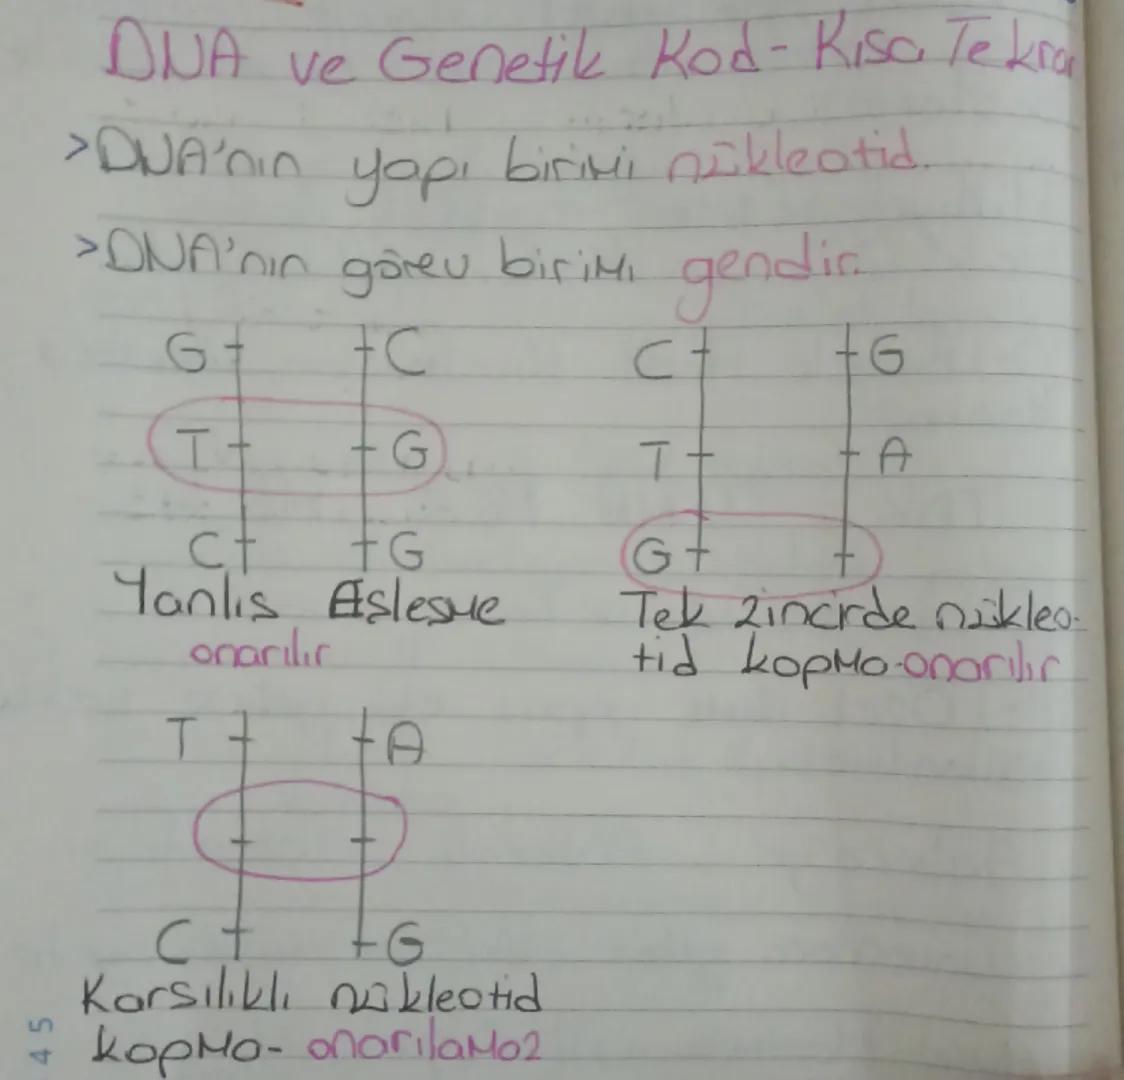 DNA ve Genetik Kod - Kısa Tekrar
>DNA'nın yapı birimi nükleotid.
>DNA'nın görev birimi gendir.
G C
T G
C G
Yanlıs Eslesme
onarılır
C G
T A
G
Tek zincirde nükleo-
tid kopma-onarılır
T A
C G
Karsılıklı nükleotid
kopma- onarılamaz
45